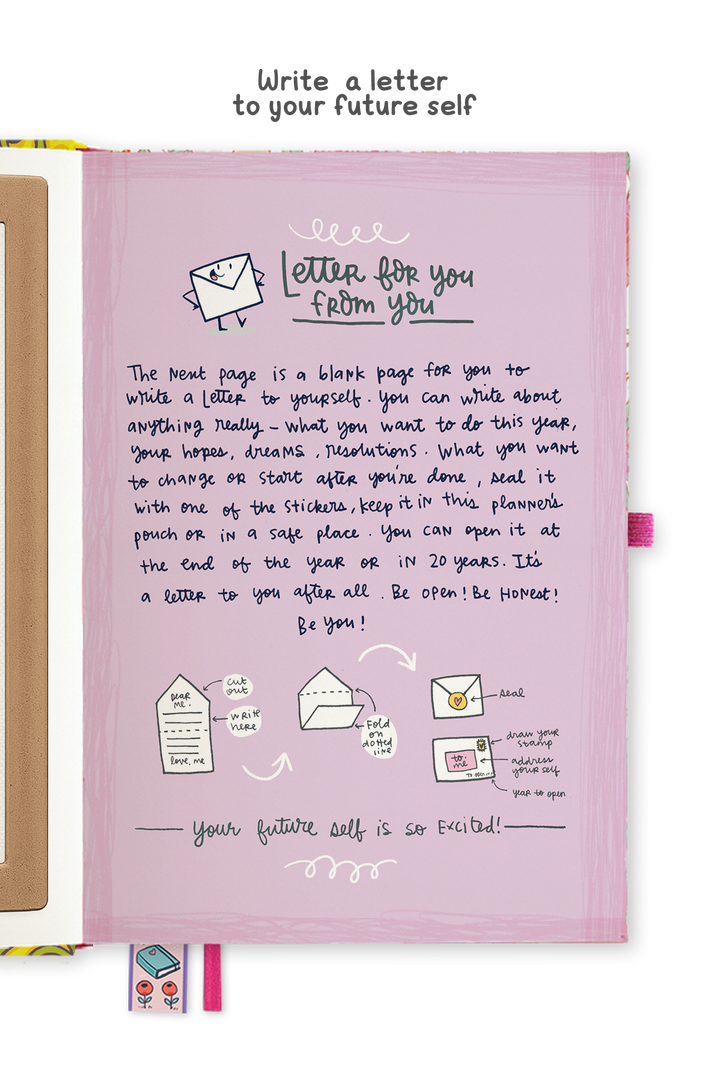 Write a letter
to your future self
Letter for you
from you
The next page is a blank page for you to
write a letter to yourself. you can write about
anything really – what you want to do this year,
your hopes, dreams, resolutions. What you want
to change or start after you're done, seal it
with one of the stickers, keep it in this planner's
pouch or in a safe place. you can open it at
the end of the year or in 20 years. It's
a letter to you after all. Be open! Be Honest!
Be you!
Dear
me,
love, me
cut
out
write
here
Fold
on
dotted
line
seal
to:
me
to open...
draw your
stamp
address
your self
year to open
Your future self is so Excited!